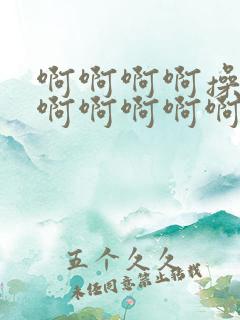 啊啊啊啊操
啊啊啊啊啊
五个久久
未经同意禁止转载